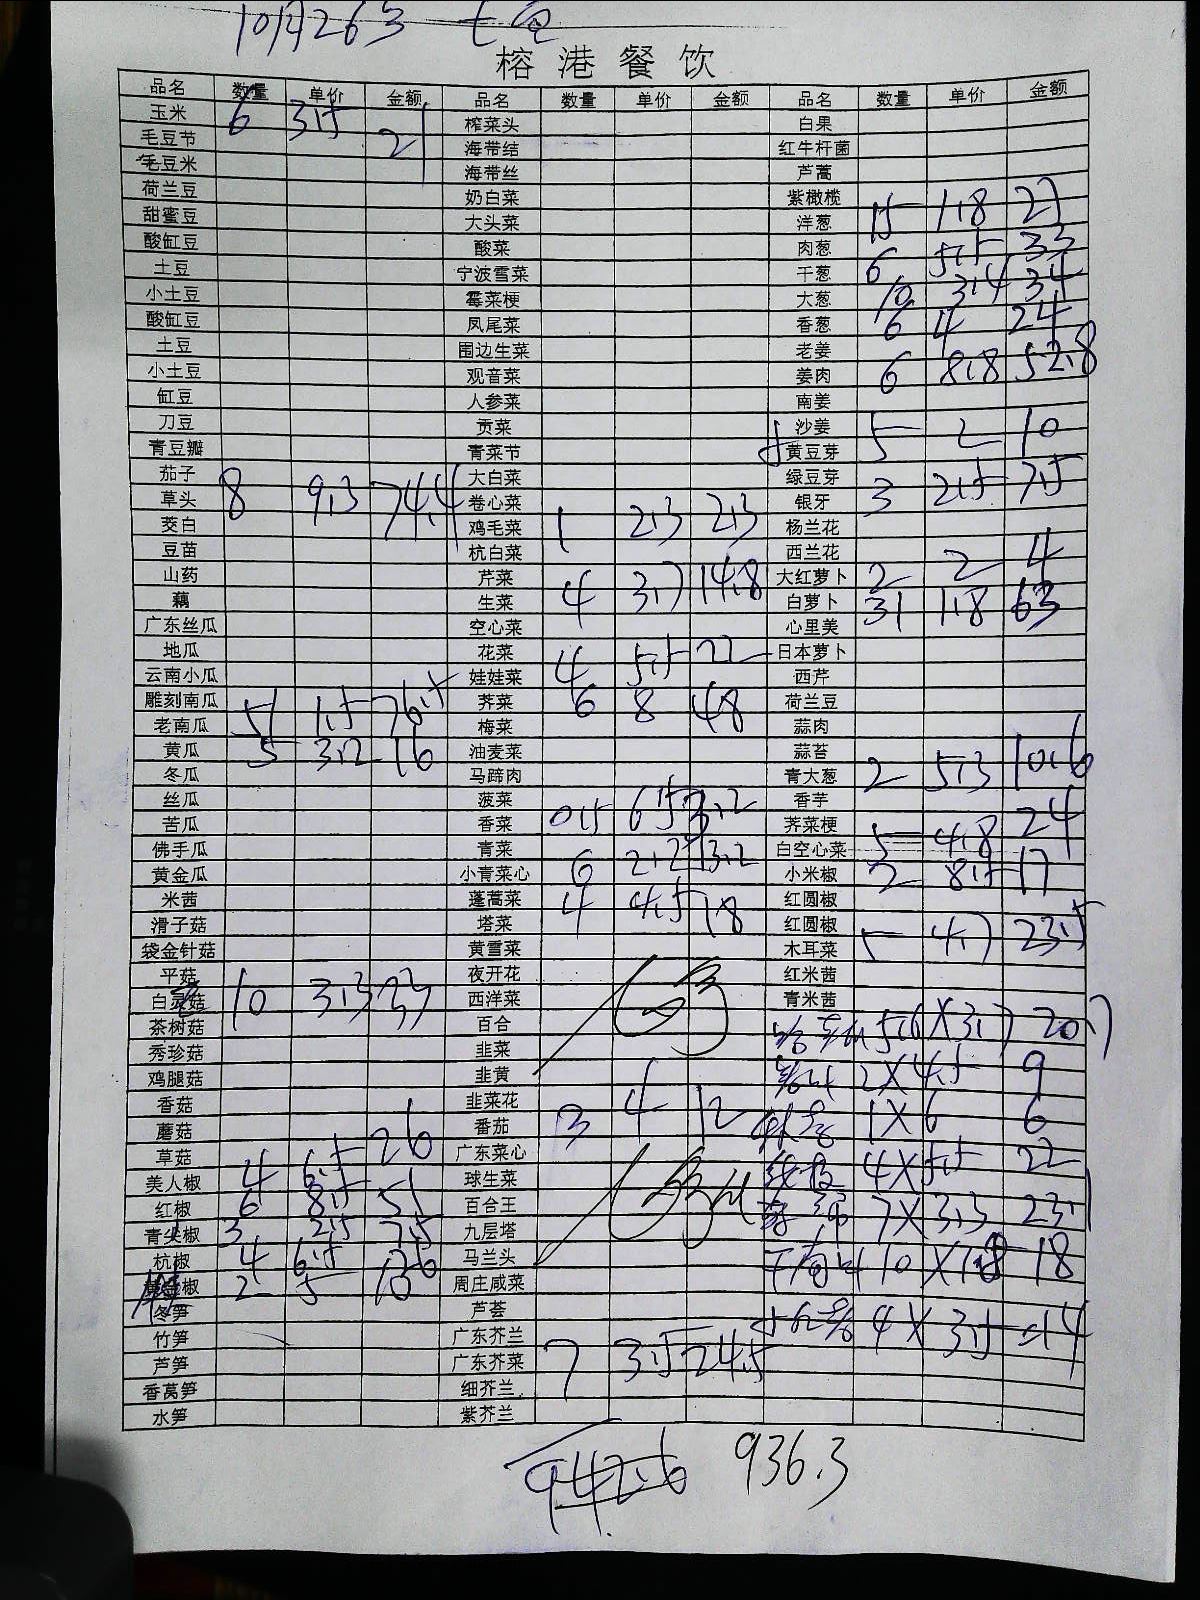 10月26号
榕港餐饮
品名 数量 单价 金额 品名 数量 单价 金额 品名 数量 单价 金额
玉米 6 3.5 21 榨菜头 白果
毛豆节 海带结 红牛杆菌
毛豆米 海带丝 芦蒿
荷兰豆 奶白菜 紫橄榄
甜蜜豆 大头菜 洋葱 15 1.8 27
酸缸豆 酸菜 肉葱 6 5.5 33
土豆 宁波雪菜 干葱
小土豆 霉菜梗 大葱 10 3.4 34
酸缸豆 凤尾菜 香葱 6 4 24
土豆 围边生菜 老姜
小土豆 观音菜 姜肉 6 8.8 52.8
缸豆 人参菜 南姜
刀豆 贡菜 沙姜
青豆瓣 青菜节 黄豆芽 5 2 10
茄子 大白菜 绿豆芽
草头 8 9.3 74.4 卷心菜 银牙 3 2.5 7.5
茭白 鸡毛菜 1 2.3 2.3 杨兰花
豆苗 杭白菜 西兰花
山药 芹菜 大红萝卜 2 2 4
藕 生菜 4 3.7 14.8 白萝卜 31 1.8 63
广东丝瓜 空心菜 心里美
地瓜 花菜 日本萝卜
云南小瓜 娃娃菜 4 5.5 22 西芹
雕刻南瓜 荠菜 6 8 48 荷兰豆
老南瓜 51 1.5 76.5 梅菜 蒜肉
黄瓜 5 3.2 16 油麦菜 蒜苔
冬瓜 马蹄肉 青大葱 2 5.3 10.6
丝瓜 菠菜 香芋
苦瓜 香菜 0.5 6.5 3.2 荠菜梗
佛手瓜 青菜 白空心菜 5 4.8 24
黄金瓜 小青菜心 6 2.2 13.2 小米椒 2 8.5 17
米茜 蓬蒿菜 4 4.5 18 红圆椒
滑子菇 塔菜 红圆椒
袋金针菇 黄雪菜 木耳菜 5 4.7 23.5
平菇 夜开花 红米茜
白灵菇 10 3.3 33 西洋菜 青米茜
茶树菇 百合 5.6×3.7 20.7
秀珍菇 韭菜
鸡腿菇 韭黄 2×4.5 9
香菇 韭菜花
蘑菇 番茄 3 4 12 1×6 6
草菇 26 广东菜心
美人椒 4 6.5 球生菜 4×5.5 22
红椒 6 8.5 51 百合王 7×3.3 23.1
青尖椒 3 2.5 7.5 九层塔
杭椒 4 6.5 马兰头 10×1.8 18
椒 2 5 10 周庄咸菜
冬笋 芦荟 4×3.5=14
竹笋 广东芥兰
芦笋 广东芥菜 7 3.5 24.5
香莴笋 细芥兰
水笋 紫芥兰
942.6 936.3